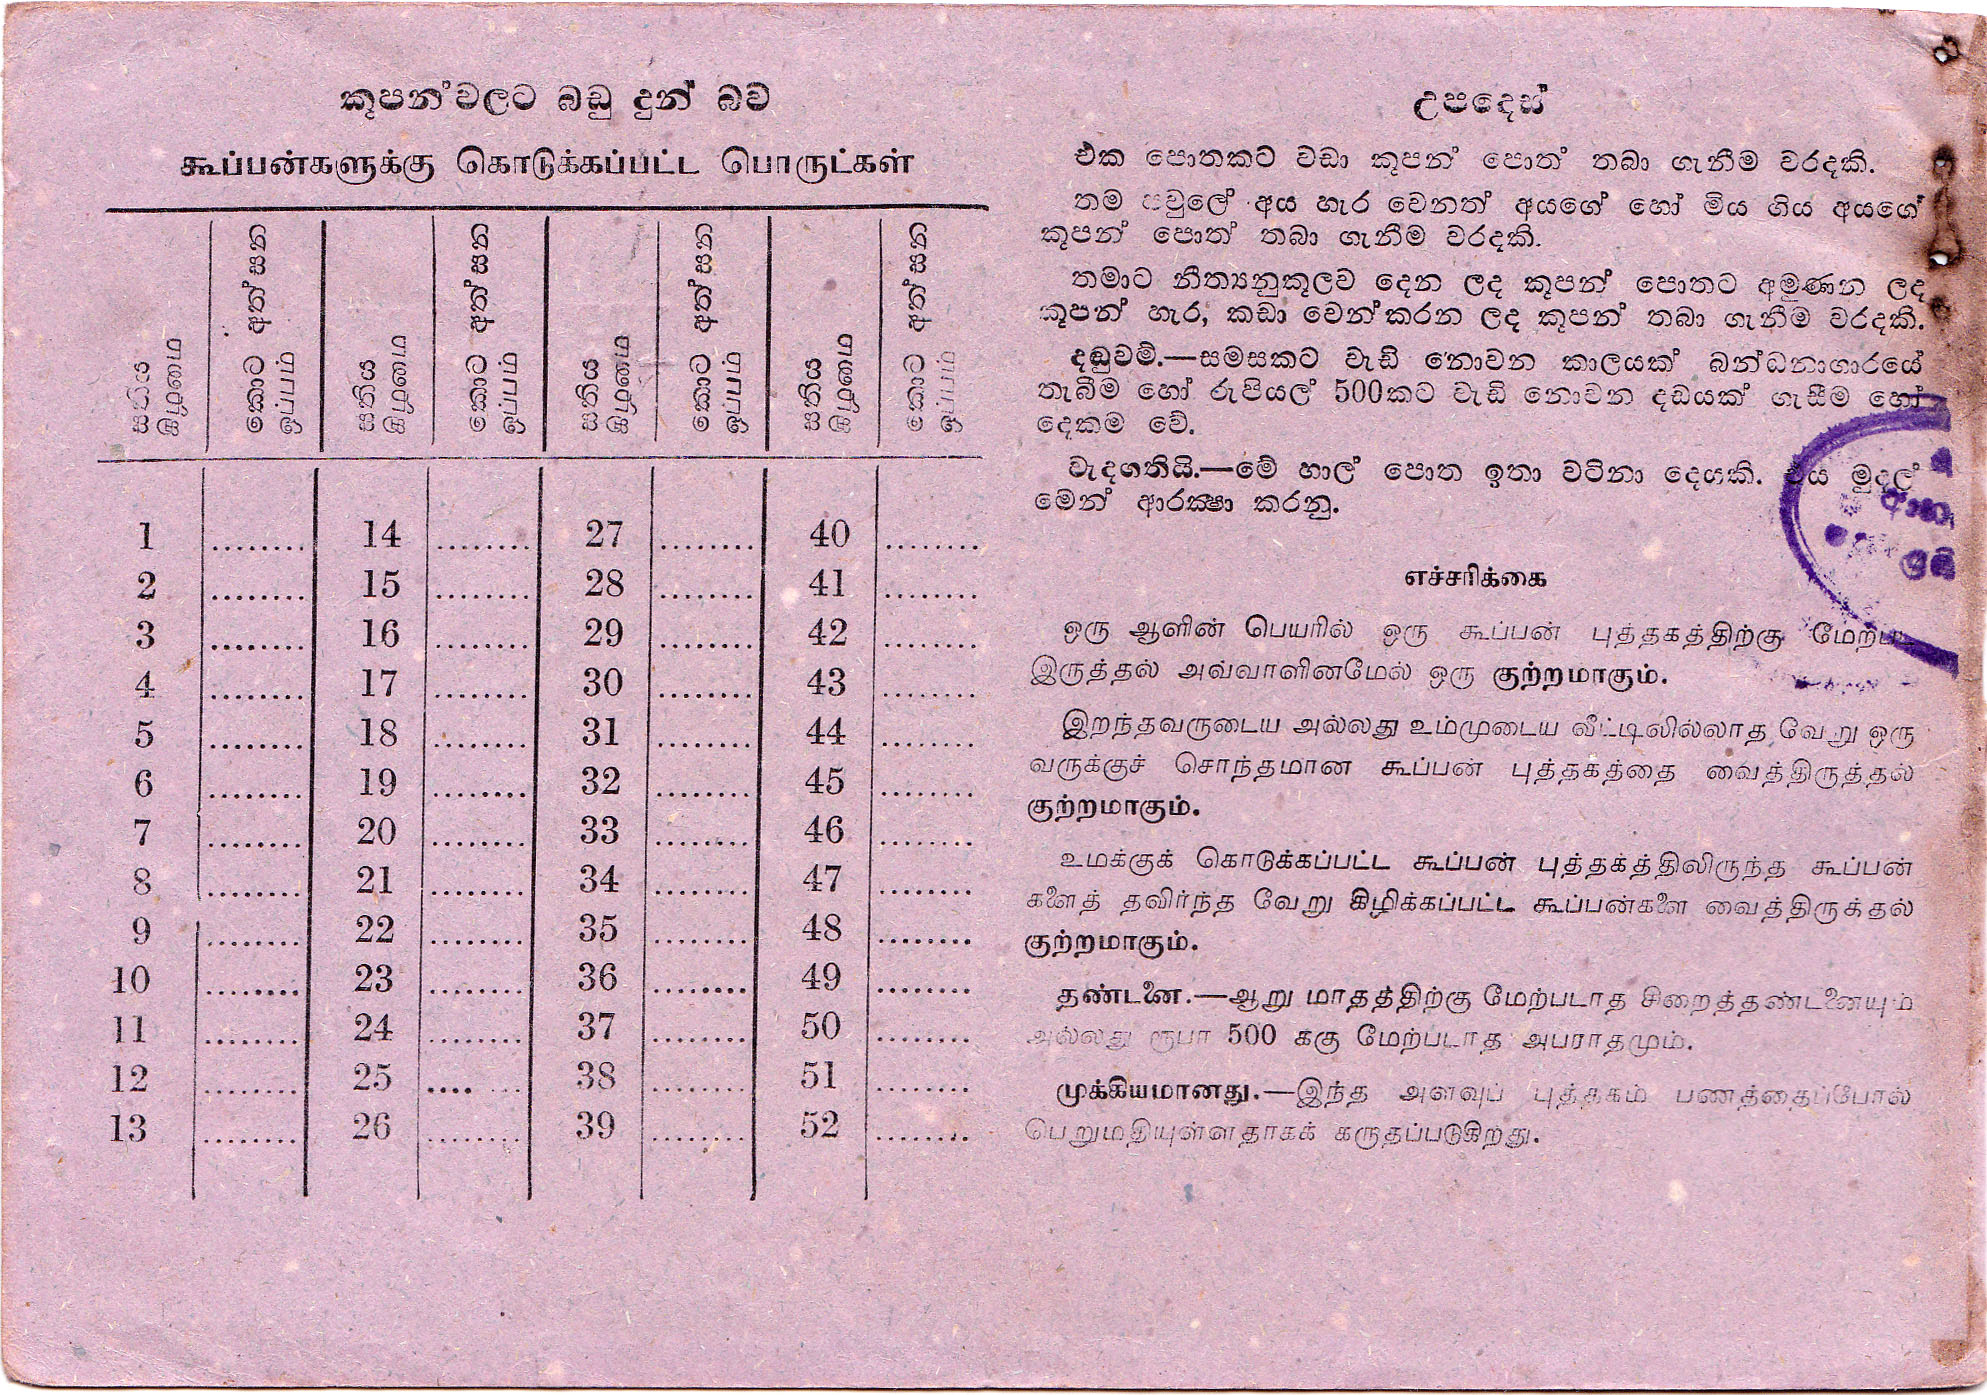 කූපන්වලට බඩු දුන් බව
கூப்பன்களுக்கு கொடுக்கப்பட்ட பொருட்கள்
සතිය கிழமை
කොට අත්සන ஒப்பம்
සතිය கிழமை
කොට අත්සන ஒப்பம்
සතිය கிழமை
කොට අත්සන ஒப்பம்
සතිය கிழமை
කොට අත්සන ஒப்பம்
1 ........ 14 ........ 27 ........ 40 ........
2 ........ 15 ........ 28 ........ 41 ........
3 ........ 16 ........ 29 ........ 42 ........
4 ........ 17 ........ 30 ........ 43 ........
5 ........ 18 ........ 31 ........ 44 ........
6 ........ 19 ........ 32 ........ 45 ........
7 ........ 20 ........ 33 ........ 46 ........
8 ........ 21 ........ 34 ........ 47 ........
9 ........ 22 ........ 35 ........ 48 ........
10 ........ 23 ........ 36 ........ 49 ........
11 ........ 24 ........ 37 ........ 50 ........
12 ........ 25 ........ 38 ........ 51 ........
13 ........ 26 ........ 39 ........ 52 ........
උපදෙස්
එක පොතකට වඩා කූපන් පොත් තබා ගැනීම වරදකි.
තම පවුලේ අය හැර වෙනත් අයගේ හෝ මිය ගිය අයගේ
කූපන් පොත් තබා ගැනීම වරදකි.
තමාට නීත්‍යනුකූලව දෙන ලද කූපන් පොතට අමුණන ලද
කූපන් හැර, කඩා වෙන්කරන ලද කූපන් තබා ගැනීම වරදකි.
දඬුවම්.—සමසකට වැඩි නොවන කාලයක් බන්ධනාගාරයේ
තැබීම හෝ රුපියල් 500කට වැඩි නොවන දඩයක් ගැසීම හෝ
දෙකම වේ.
වැදගතියි.—මේ හාල් පොත ඉතා වටිනා දෙයකි. එය මුදල්
මෙන් ආරක්‍ෂා කරනු.
எச்சரிக்கை
ஒரு ஆளின் பெயரில் ஒரு கூப்பன் புத்தகத்திற்கு மேற்பட
இருத்தல் அவ்வாளினமேல் ஒரு குற்றமாகும்.
இறந்தவருடைய அல்லது உம்முடைய வீட்டிலில்லாத வேறு ஒரு
வருக்குச் சொந்தமான கூப்பன் புத்தகத்தை வைத்திருத்தல்
குற்றமாகும்.
உமக்குக் கொடுக்கப்பட்ட கூப்பன் புத்தக்த்திலிருந்த கூப்பன்
களைத் தவிர்ந்த வேறு கிழிக்கப்பட்ட கூப்பன்களை வைத்திருக்தல்
குற்றமாகும்.
தண்டனை.—ஆறு மாதத்திற்கு மேற்படாத சிறைத்தண்டனையும்
அல்லது ரூபா 500 க்கு மேற்படாத அபராதமும்.
முக்கியமானது.—இந்த அளவுப் புத்தகம் பணத்தைப்போல்
பெறுமதியுள்ளதாகக் கருதப்படுகிறது.